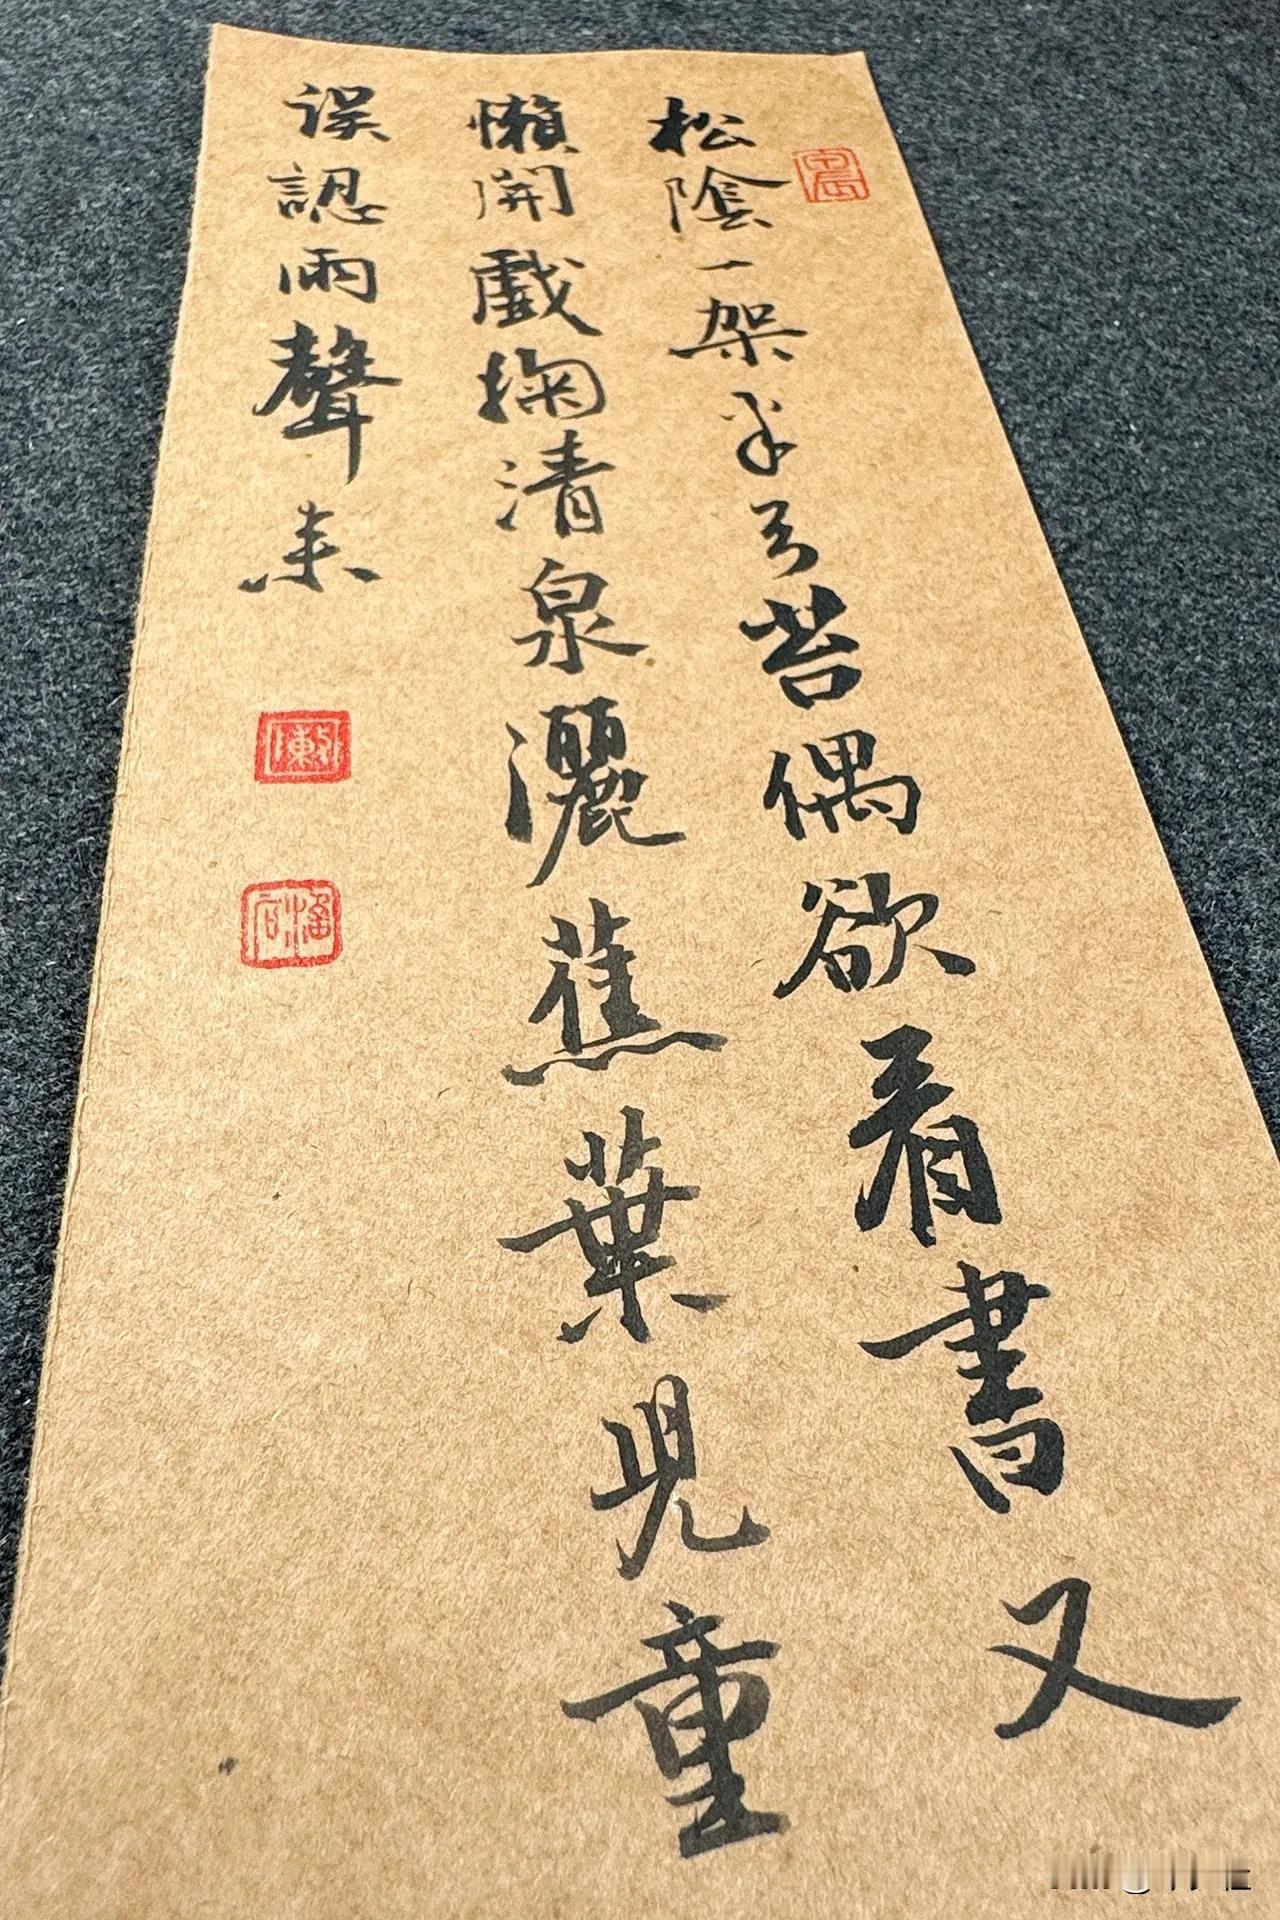 松陰一架半弓苔偶欲看書又
懶開戲掬清泉灑蕉葉兒童
误認雨聲来